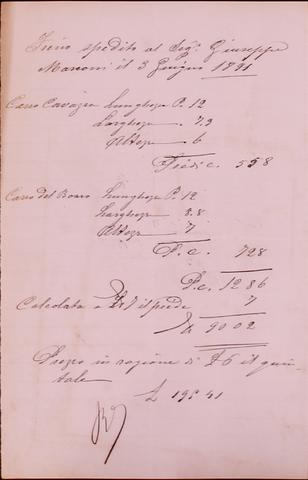 Fieno spedito al Sigr. Giuseppe
Marconi il 3 Giugno 1891
Carro Cavazza Lunghezza P. 12
Larghezza . 7,9
Altezza . 6
Piedi c. 558
Carro del Boaro Lunghezza P. 12
Larghezza 8.8
Altezza 7
P. c. 728
P. c. 1286
Calcolata a 7 il piede 7
9002
Prezzo in ragione di £ 6 il quin-
tale
£ 195 41